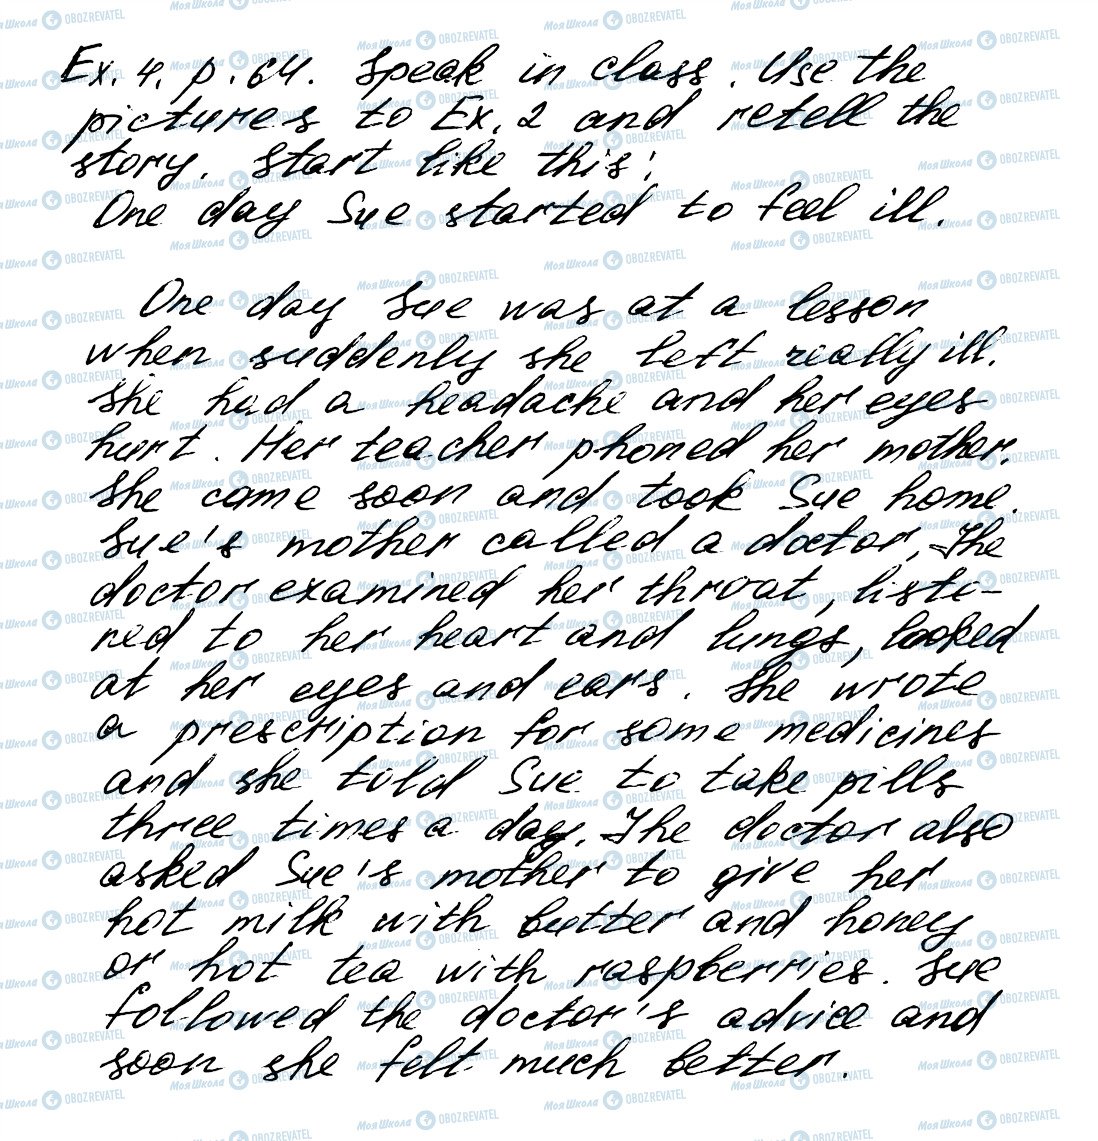 Ex. 4. p. 64. Speak in class. Use the
pictures to Ex. 2 and retell the
story. Start like this:
One day Sue started to feel ill.
One day Sue was at a lesson
when suddenly she left really ill.
She had a headache and her eyes
hurt. Her teacher phoned her mother.
She came soon and took Sue home.
Sue's mother called a doctor. The
doctor examined her throat, liste-
ned to her heart and lungs, looked
at her eyes and ears. She wrote
a prescription for some medicines
and she told Sue to take pills
three times a day. The doctor also
asked Sue's mother to give her
hot milk with butter and honey
or hot tea with raspberries. Sue
followed the doctor's advice and
soon she felt much better.